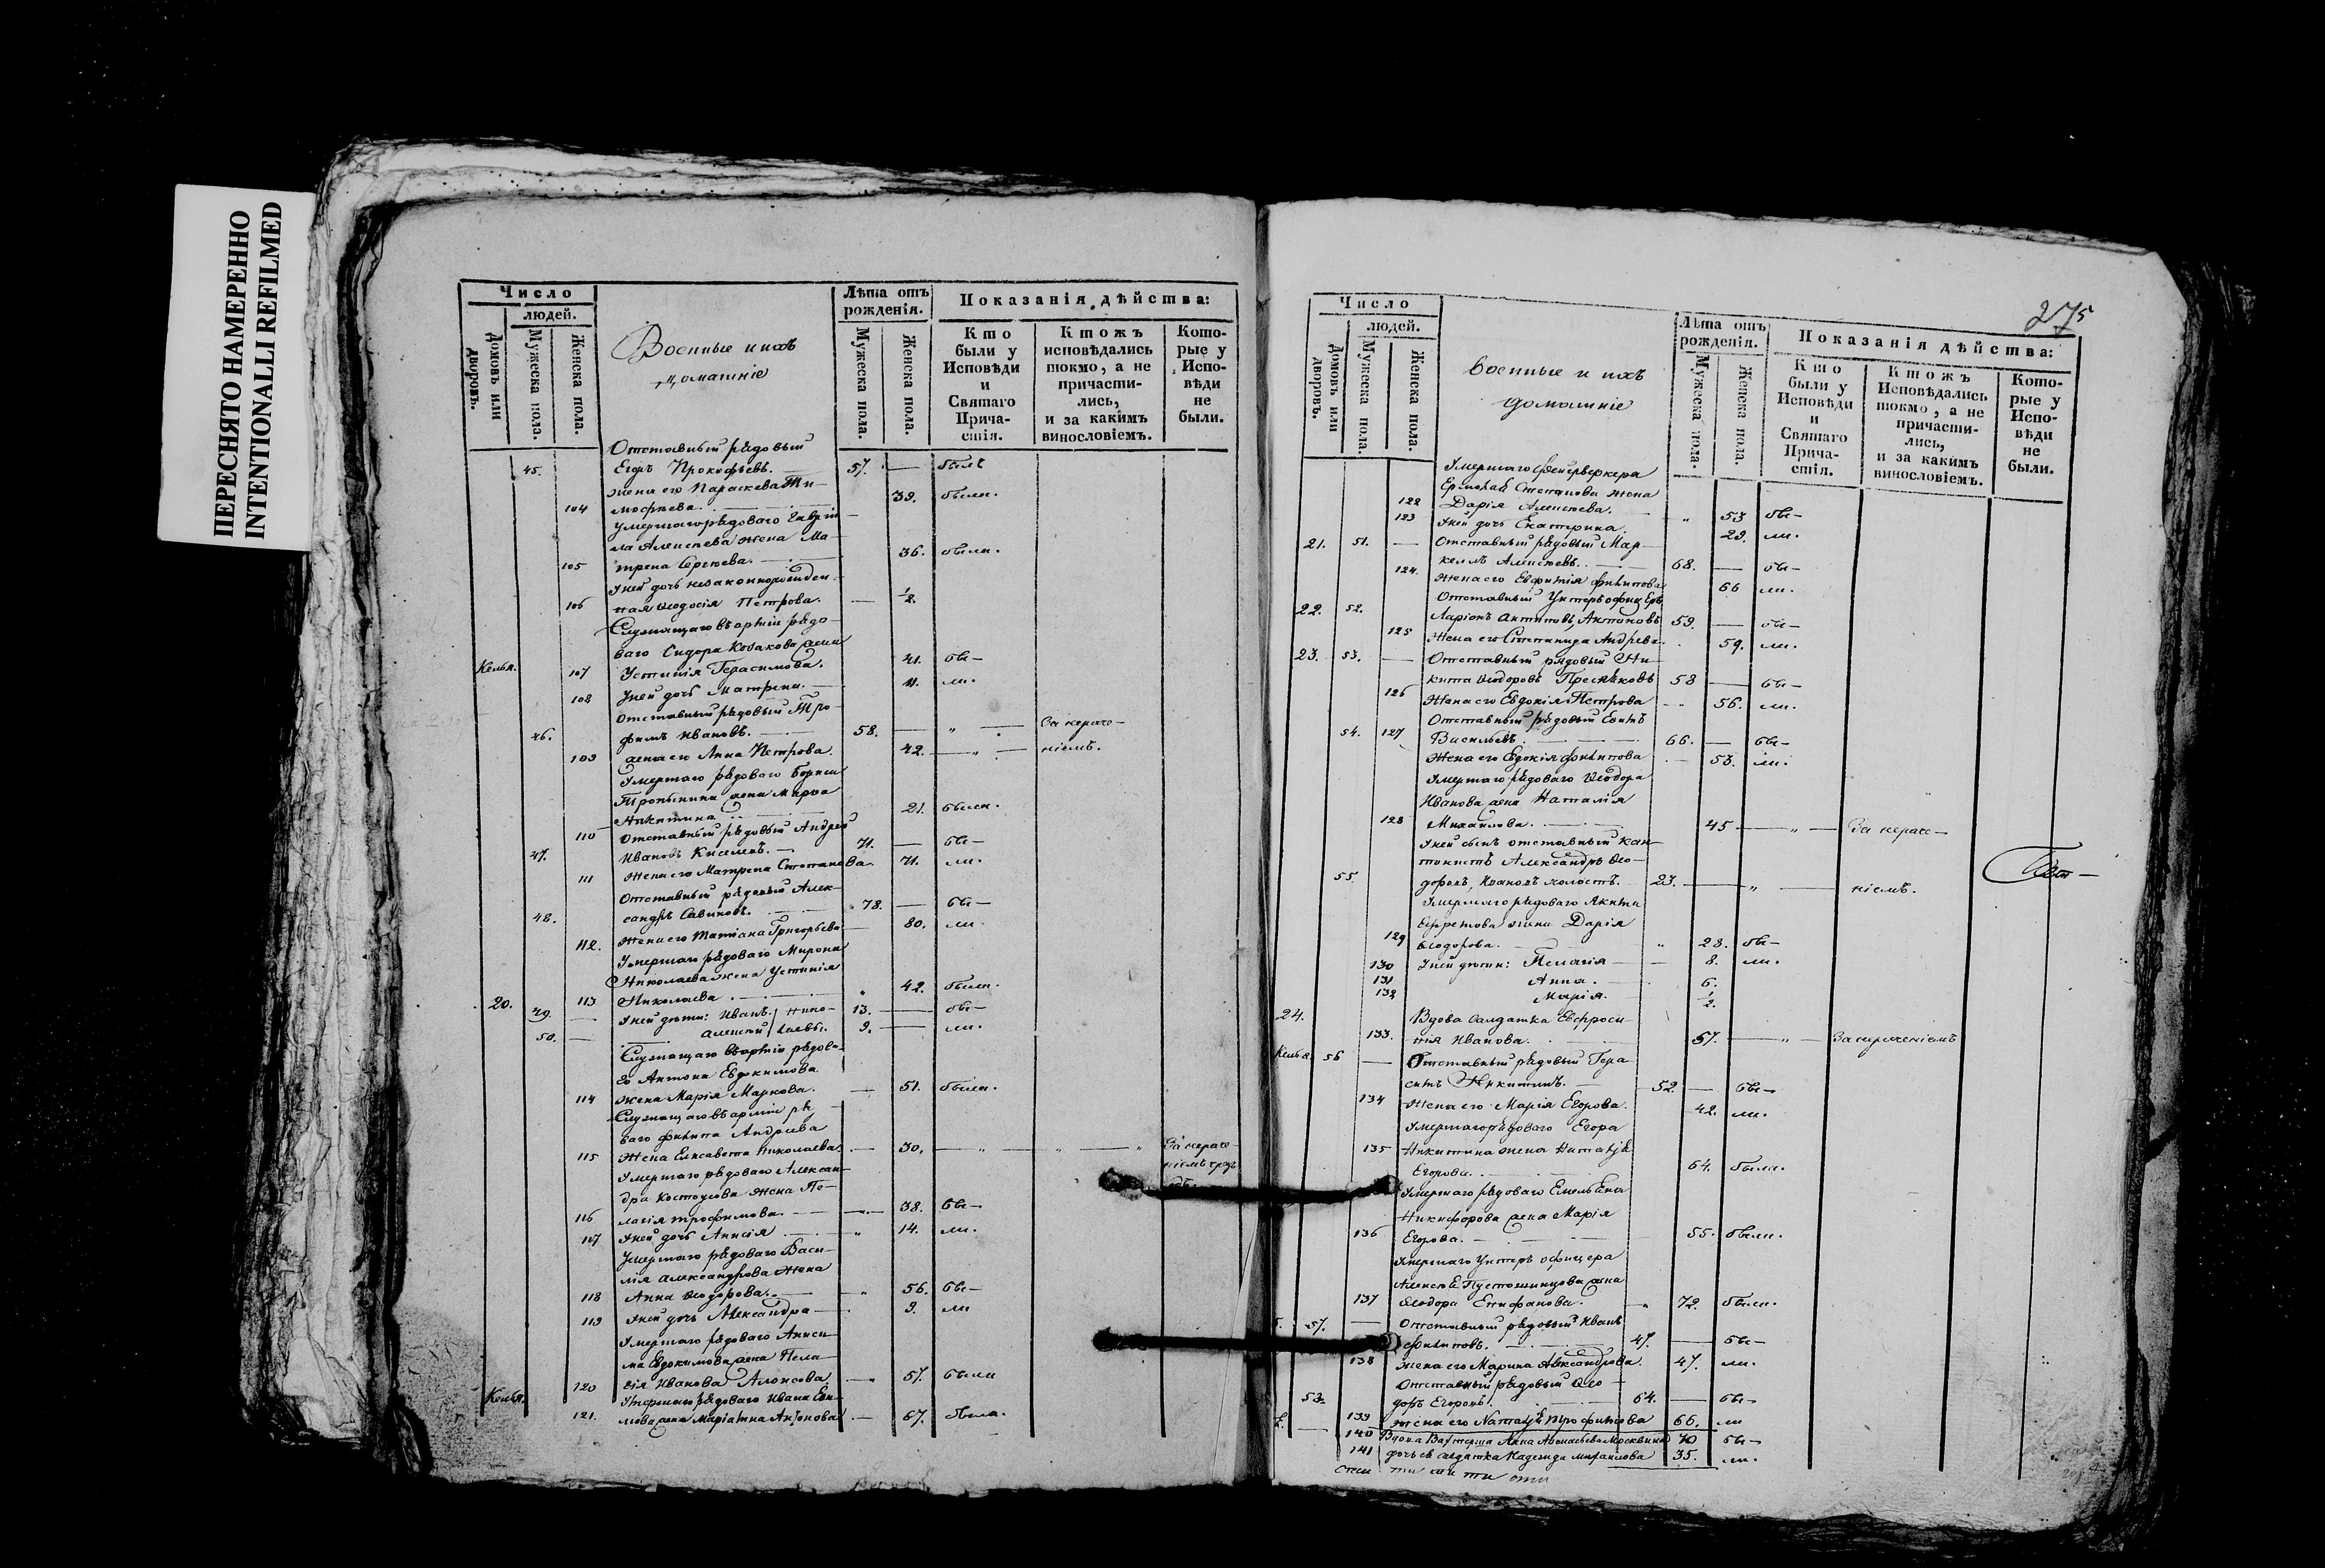 ПЕРЕСНЯТО НАМЕРЕННО
INTENTIONALLI REFILMED
Число
людей.
Домовъ или дворовъ.
Мужеска пола.
Женска пола.
Военные и ихъ
домашніе
Лѣта отъ рожденія.
Мужеска пола.
Женска пола.
Показанія дѣйства:
Кто были у Исповѣди и Святаго Причастія.
Ктожъ исповѣдались токмо, а не причастились, и за какимъ винословіемъ.
Которые у Исповѣди не были.
Отставный рядовый
45. Егоръ Прокофьевъ. 57. — былъ
жена его Параскева Ти-
104 мофѣева. 39. была.
умершаго рядоваго Гаврі-
ла Алексѣева жена Ма-
105 трена Сергѣева. 36. была.
у ней дочь незаконнорожден-
106 ная Ѳеодосія Петрова. — 1/2.
Служащаго въ арміи рядо-
ваго Сидора Козакова жена
Келья. 107 Устинія Герасимова. 41. бы-
108 у ней дочь Матрена. 11. ли.
отставный рядовый Тро-
46. фимъ Ивановъ. 58. — „ — За нераче-
109 жена его Анна Петрова. 42. — „ — ніемъ.
Умершаго рядоваго Бориса
жена Марѳа
110 Никитина 21. была.
отставный рядовый Андрей
47. Ивановъ Киселевъ. — 71. — бы-
111 жена его Матрена Степанова. 71. ли.
Отставный рядовый Алек-
48. сандръ Савиновъ. 78. — бы-
112. жена его Татіана Григорьева 80. ли.
Умершаго рядоваго Мирона
Николаева жена Устинія
113 Николаева. 42. была.
20. 49. — у ней дѣти: Иванъ. Нико- 13. — бы-
50. — Алексѣй лаевы. 9. — ли.
Служащаго въ арміи рядова-
го Антона Евдокимова
114 жена Марія Маркова. — 51. была.
Служащаго въ арміи ря-
ваго Филипа Андреева
115 жена Елисавета Николаева. — 30. — „ — „ — „ За нераче-
Умершаго рядоваго Алексан-
дра жена Пе-
116 лагія Трофимова. 38. бы-
117 у ней дочь Анисія — „ 14. ли.
умершаго рядоваго Васи-
лія Александрова жена
118 Анна Ѳеодорова. „ 56. бы-
119 у ней дочь Александра — 9. ли
Умершаго рядоваго Аниси-
ма Евдокимова жена Пела-
120 гія Иванова 57. была
Келья. Умершаго рядоваго Ивана
121. жена Маріамна Антонова — 67. была.
275
Число
людей.
Домовъ или дворовъ.
Мужеска пола.
Женска пола.
Военные и ихъ
домашніе
Лѣта отъ рожденія.
Мужеска пола.
Женска пола.
Показанія дѣйства:
Кто были у Исповѣди и Святаго Причастія.
Ктожъ Исповѣдались токмо, а не причастились, и за какимъ винословіемъ.
Которые у Исповѣди не были.
Умершаго фейерверкера
Ермолая Степанова жена
122 Дарія Алексѣева. „ 53 бы-
123 у ней дочь Екатерина. 29. ли.
21. 51. — Отставный рядовый Мар-
келлъ Алексѣевъ. 68. — бы-
124. жена его Евфимія Филипова 66 ли.
Отставный Унтеръ офицеръ
22. 52. Ларіонъ Антоновъ 59. — бы-
125 жена его Степанида Андреева. 59. ли.
23. 53. — Отставный рядовый Ни-
кита Ѳеодоровъ Пресняковъ 58 — бы-
126 Жена его Евдокія Петрова — 56. ли.
Отставный рядовый
54. 127 Васильевъ. 66. — бы-
Жена его Евдокія Филипова — 53. ли.
Умершаго рядоваго Ѳеодора
Иванова жена Наталія
128 Михаилова. 45 — „ — За нераче-
у ней сынъ отставный кан-
тонистъ Александръ Ѳео-
55. доровъ, Ивановъ холостъ. 23. — „ — ніемъ.
Умершаго рядоваго Никиты
Ефремова жена Дарія
129 Ѳеодорова. „ 28. бы-
130 У ней дѣти: Пелагія — 8. ли.
131 Анна. — 6.
132 Марія. 1/2.
24. Вдова Солдатка Евфроси-
133. нія Иванова. 57. — „ — За нераченіемъ
Келья. 56 — Отставный рядовый Гера-
симъ Никитинъ. — 52. — бы-
134 Жена его Марія Егорова. 42. ли.
Умершаго рядоваго Егора
135 Никитина жена Наталья
Егорова. 64. была.
Умершаго рядоваго Емельяна
Никифорова жена Марія
136 Егорова. 55. была.
Умершаго Унтеръ офицера
Алексѣя жена
137 Ѳеодора Епифанова. — „ 72. была.
57. — Отставный рядовый Иванъ
Филиповъ. 47. — бы-
138 жена его Марина Александрова. 47. ли.
Отставный рядовый Ѳео-
53. доръ Егоровъ. 64. — бы-
139 жена его Наталья Трофимова 66. ли
140 Вдова Вахтерша Анна Аѳанасьева Москвина 70 бы-
141 дочь ея солдатка Надежда Михаилова 35. ли.